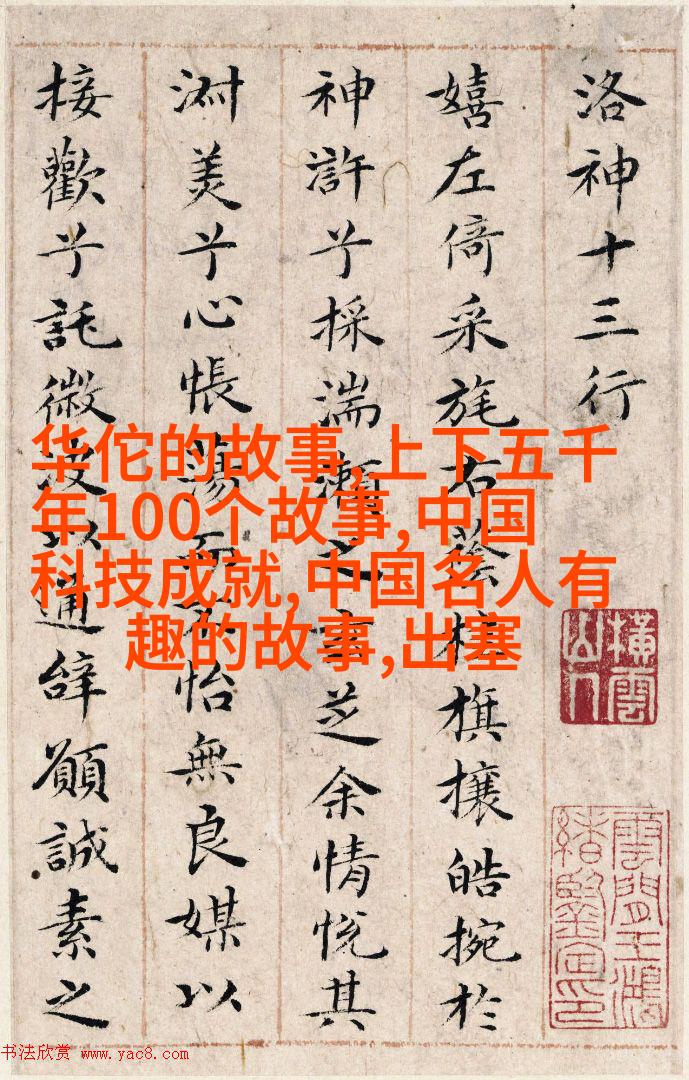 洛神十三行
嬉左倚采旄右蔭桂旗攘皓捥於
神許兮採湍瀨之玄芝余情悅其
淑美兮心悵蕩而不怡無良媒以
接歡兮託微波以通辭願誠素之
华佗的故事,上下五千
年100个故事,中国
科技成就,中国名人有
趣的故事,出塞
橫雲山人
雲間王鴻緒鑒定印
书法欣赏 www.yac8.com